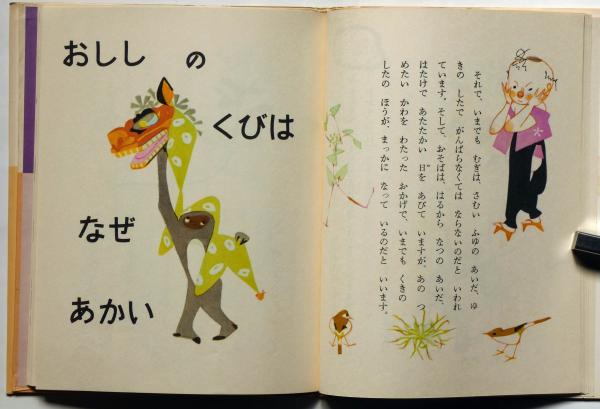 それで、いまでも むぎは、さむい ふゆの あいだ、ゆ
きの したで がんばらなくては ならないのだと いわれ
ています。そして、おそばは、はるから なつの あいだ、
はたけで あたたかい 日を あびて いますが、あの つ
めたい かわを わたった おかげで、いまでも くきの
したの ほうが、まっかに なって いるのだと いいます。
おしし の
くびは
なぜ
あかい